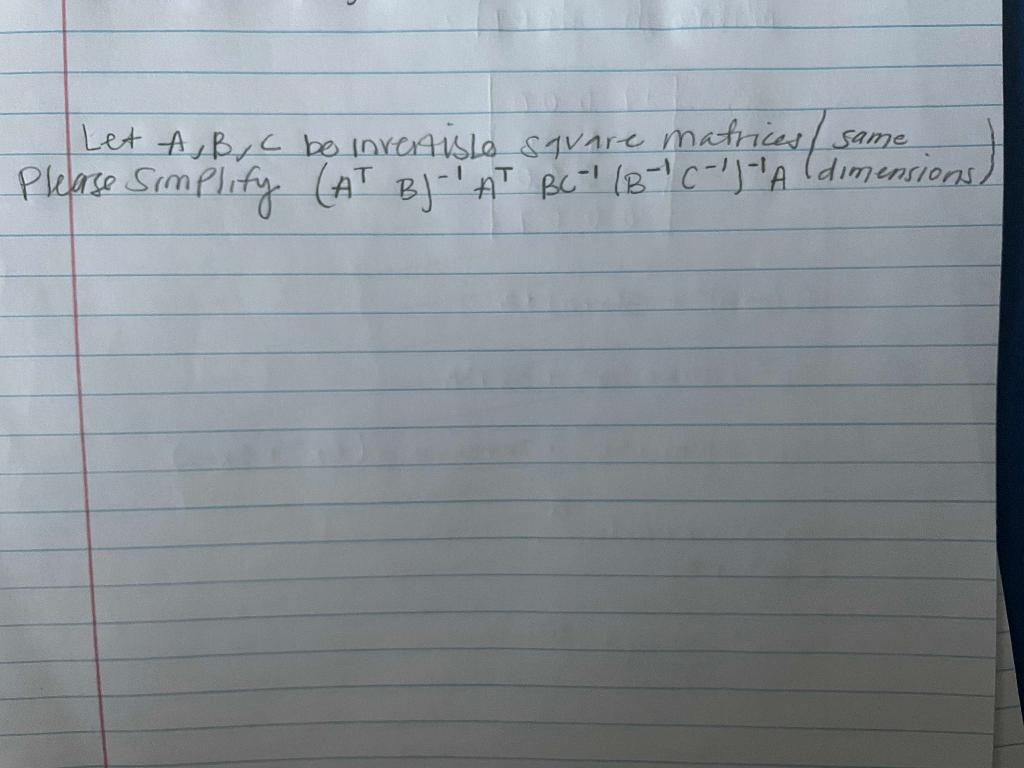 Let A, B, C be invertible square matrices (same
Please Simplify (Aᵀ B)⁻¹ Aᵀ BC⁻¹ (B⁻¹ C⁻¹)⁻¹ A dimensions)